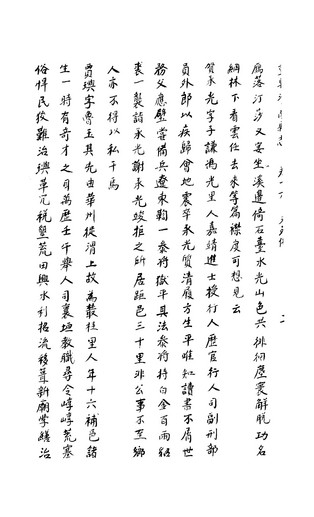 雁落汀莎又妄坐溪邊倚石臺水光山色共徘徊塵褱解脫功名
綱林下看雲任去来等篇襟度可想見云
賀永光字子謙馮光里人嘉靖進士授行人歷官行人司副刑部
員外郎以疾歸會地震卒永光質清履方生平唯知讀書不屑世
務父應璧嘗備兵遼東鞫一叅將獄平其法叅將持白金百両貂
裘一襲詣永光謝永光竣拒之所居距邑三十里非公事不至鄉
人亦不得以私干焉
賈璵字魯玉其先由華州從渭上故為叢桂里人年十六補邑諸
生一時有奇才之司萬歷壬午舉人司襄垣教職尋令崞崞荒塞
俗悍民狡難治璵革冗稅墾荒田興水利招流移葺新廟學繕治